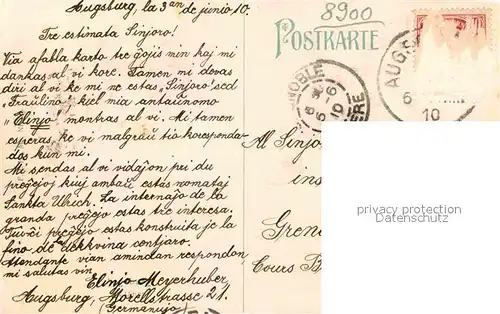 Augsburg, la 3an de junio 10.
Tre estimata Sinjoro!
Via afabla karto tre ĝojis min kaj mi
dankas al vi kore. Tamen mi devas
diri al vi ke mi ne estas „Sinjoro" sed
„Fraŭlino" kiel mia antaŭnomo
„Elinjo" montras al vi. Mi tamen
esperas, ke vi malgraŭ tio koresponda-
dos kun mi.
Mi sendas al vi vidaĵon pri du
preĝejoj kiuj ambaŭ estas nomataj
Sankta Ulrich. La internaĵo de la
granda preĝejo estas tre interesa.
Tiu-ĉi preĝejo estas konstruita je la
fino de dekkvina centjaro.
Attendante vian amindan respondon,
mi salutas vin
Elinjo Meyerhuber,
Augsburg, Morellstrasse 21.
(Germanujo)
8900
POSTKARTE
NOBLE
6 - 6
10
ERE
AUGS
6
10
Al Sinjo
ins
Gren
Cours B
privacy protection
www.oldthing.com